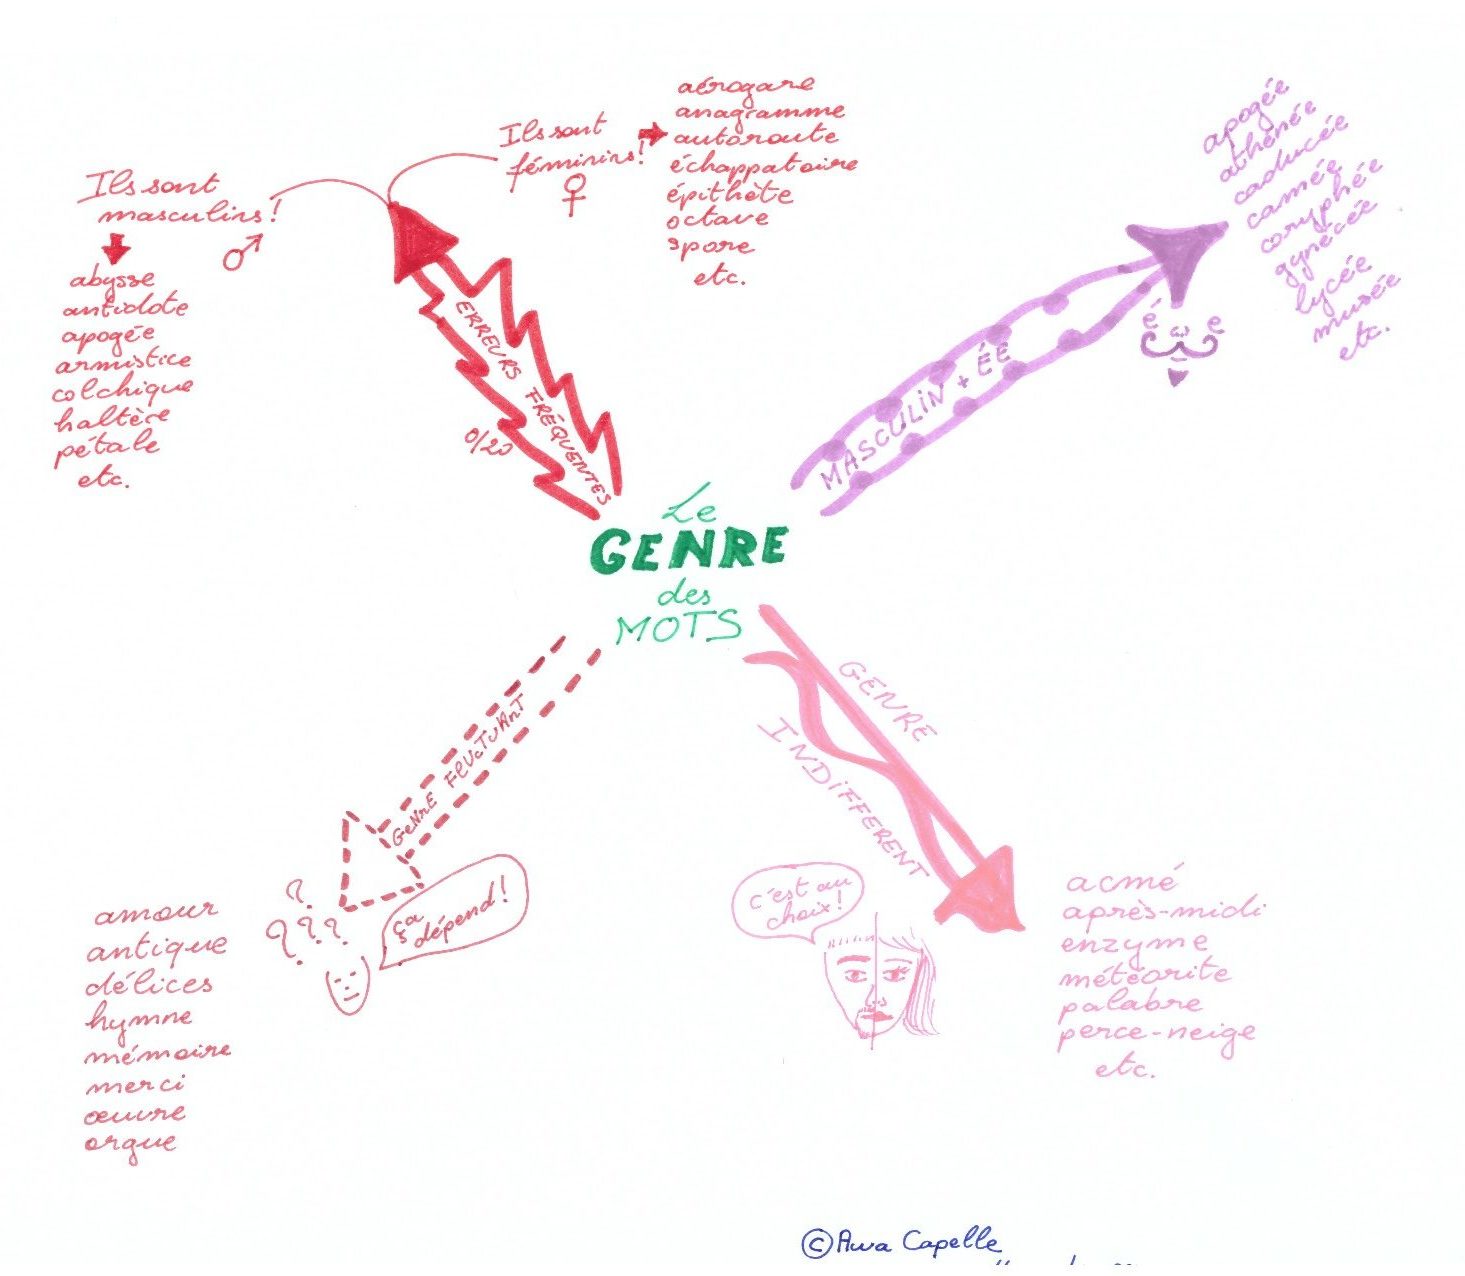 Le
GENRE
des
MOTS
ERREURS FRÉQUENTES
0/20
Ils sont
masculins!
abysse
antidote
apogée
armistice
colchique
haltère
pétale
etc.
Ils sont
féminins!
aérogare
anagramme
autoroute
échappatoire
épithète
octave
spore
etc.
MASCULIN + ÉE
é e
apogée
athénée
caducée
camée
coryphée
gynécée
lycée
musée
etc.
GENRE
INDIFFERENT
c'est au
choix!
acmé
après-midi
enzyme
météorite
palabre
perce-neige
etc.
GENRE FLUCTUANT
? ? ? ?
ça
dépend!
amour
antique
délices
hymne
mémoire
merci
œuvre
orgue
© Awa Capelle